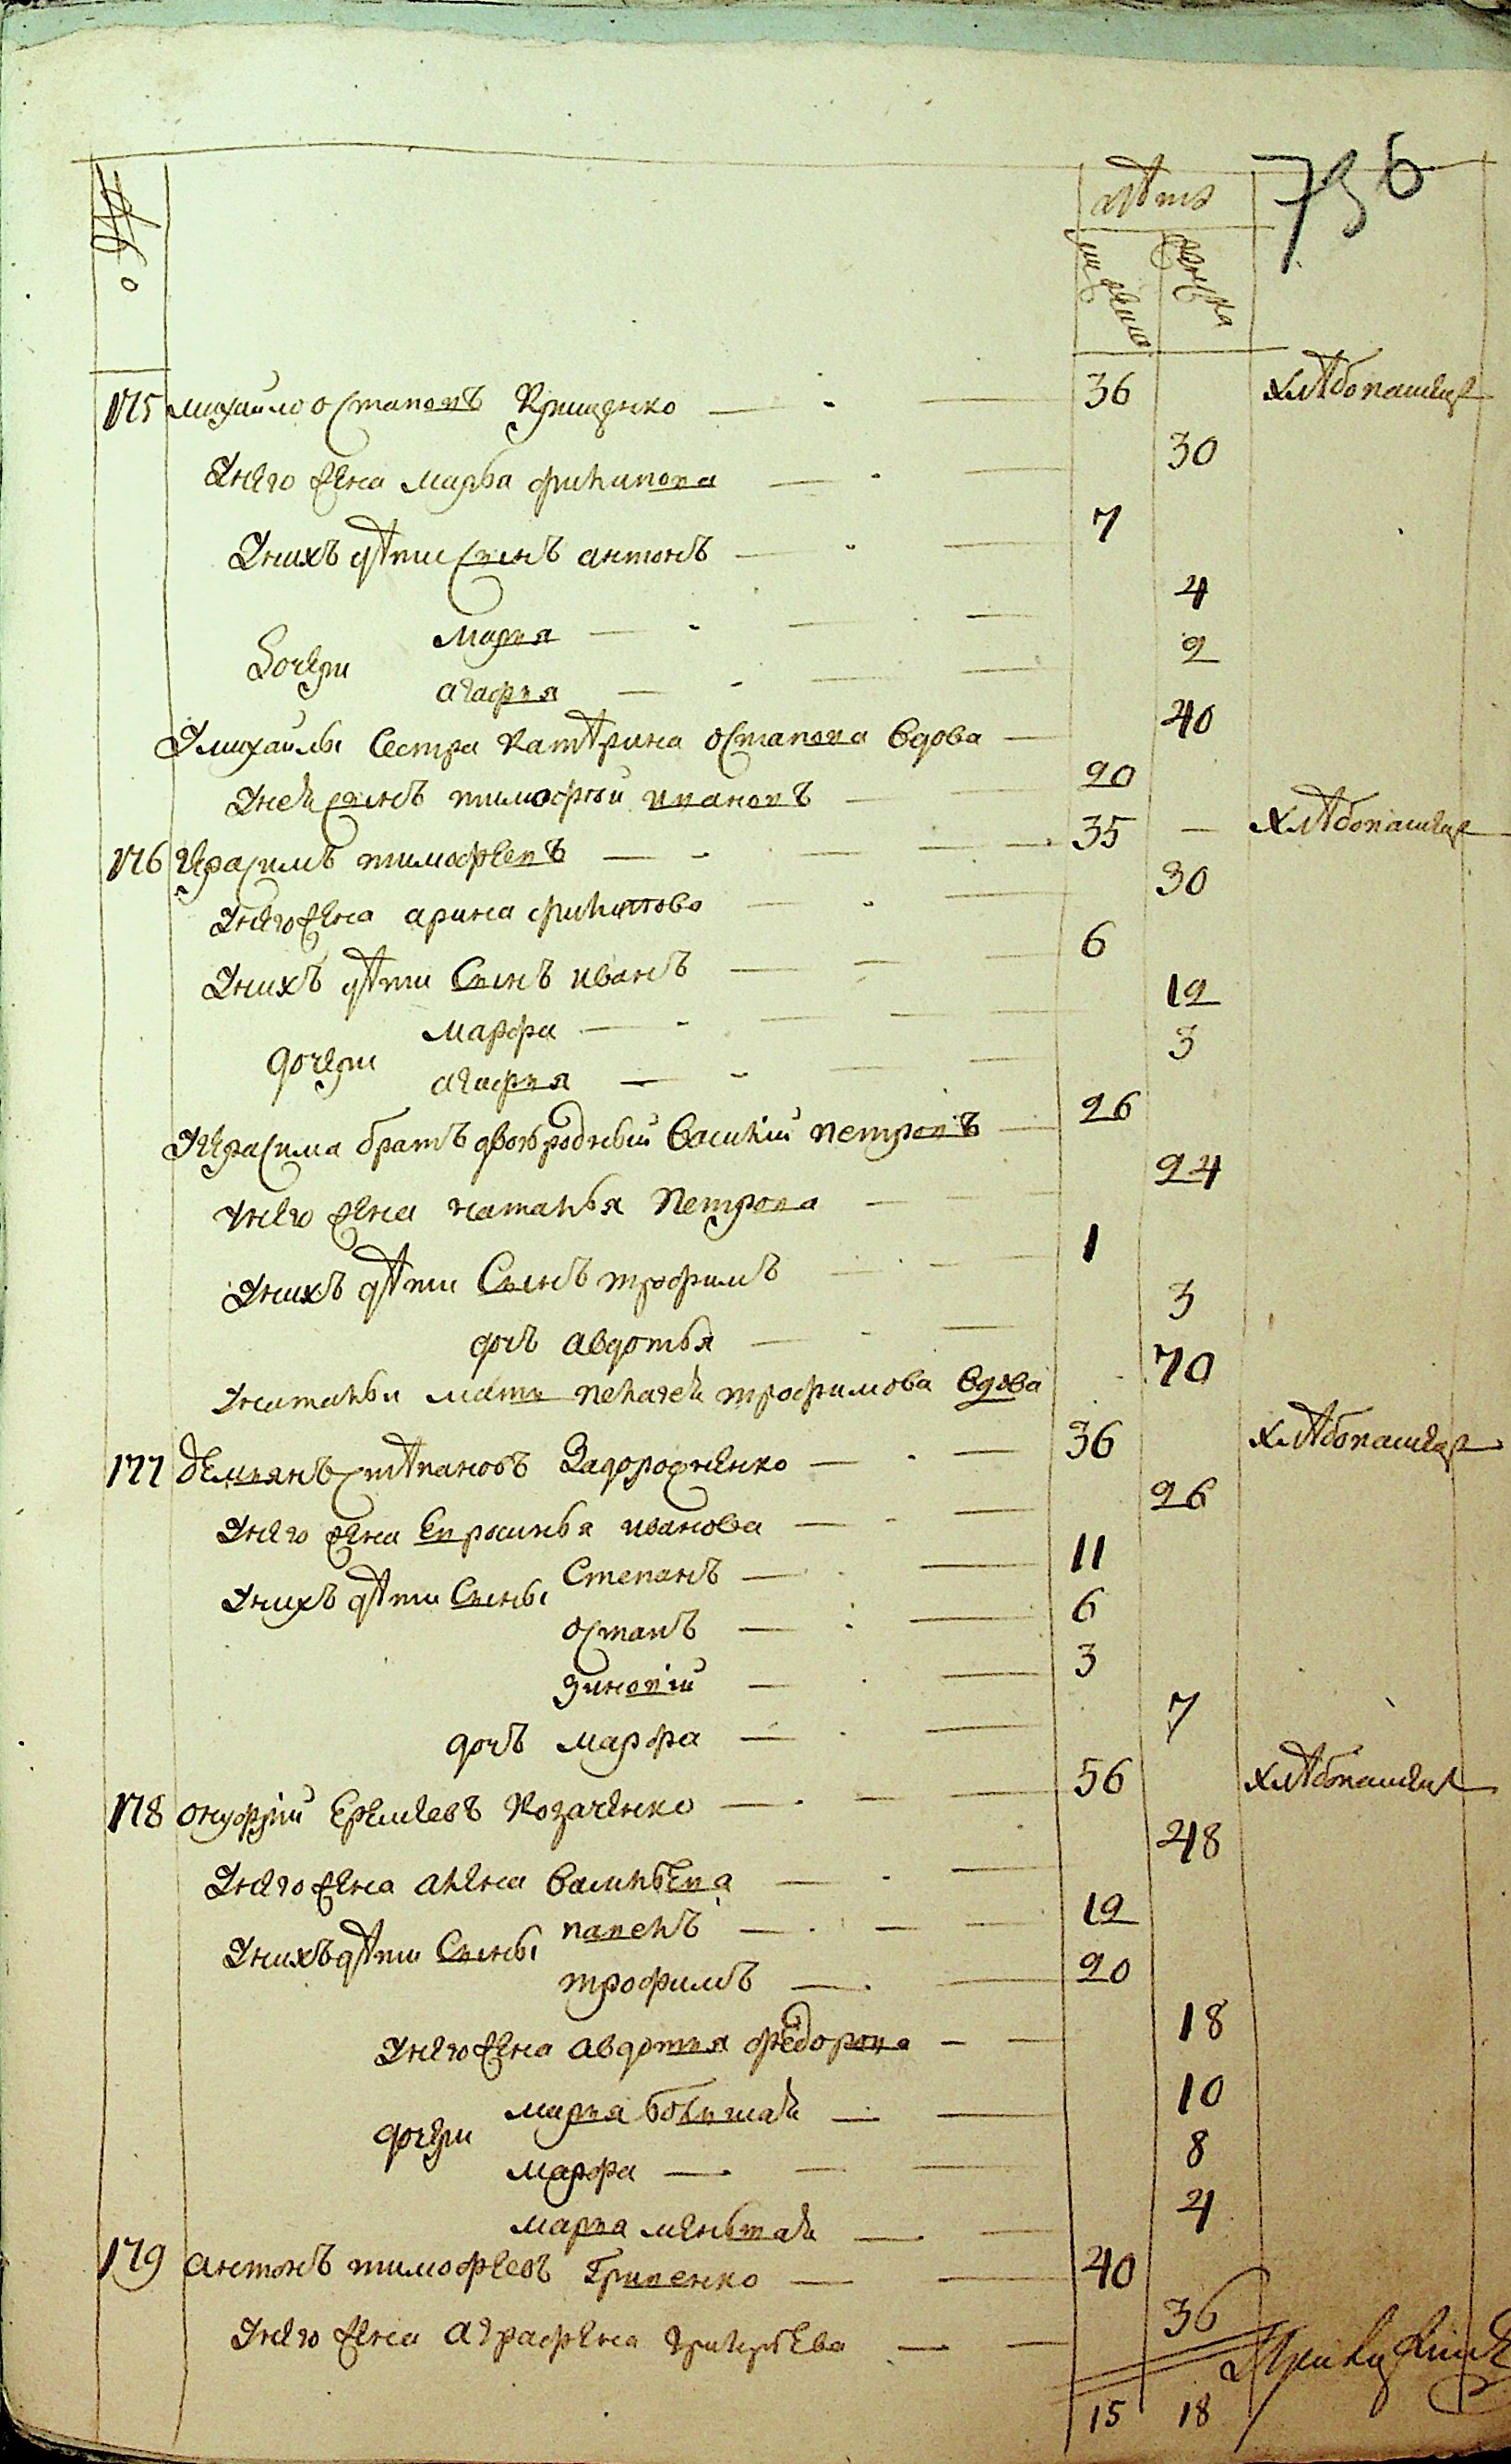 №
лѣтъ
мужеска
женска
756
175 михайло остаповъ Крищенко 36 хлѣбопашецъ
Унего жена марья филипова 30
Унихъ дѣти сынъ антонъ 7
Дочери
марья 4
агафья 2
Умихайлы Сестра Катѣрина остапова вдова 40
Уней сынъ тимофѣй ивановъ 20
176 Герасимъ тимофѣевъ 35 хлѣбопашецъ
Унего жена арина филипова 30
Унихъ дѣти Сынъ иванъ 6
дочери
марфа 12
агафья 3
Угерасима братъ двоюродный василій петровъ 26
Унего жена наталья петрова 24
Унихъ дѣти Сынъ трофимъ 1
дочъ авдотья 3
Унатальи мать пелагей трофимова вдова 70
177 демьянъ стѣпановъ Задорожненко 36 хлѣбопашецъ
Унего жена Евросинья иванова 26
Унихъ дѣти Сыны
степанъ 11
остапъ 6
зиновій 3
дочъ марфа 7
178 онуфрій Еремеевъ Козаченко 56 хлѣбопашецъ
Унего жена алена васильева 48
Унихъ дѣти Сыны
павелъ 12
трофимъ 20
Унего жена авдотья федорова 18
дочери
марья большай 10
марфа 8
марья меньшай 4
179 антонъ тимофеевъ Гриненко 40
Унего жена аграфена григорьева 36
15 18